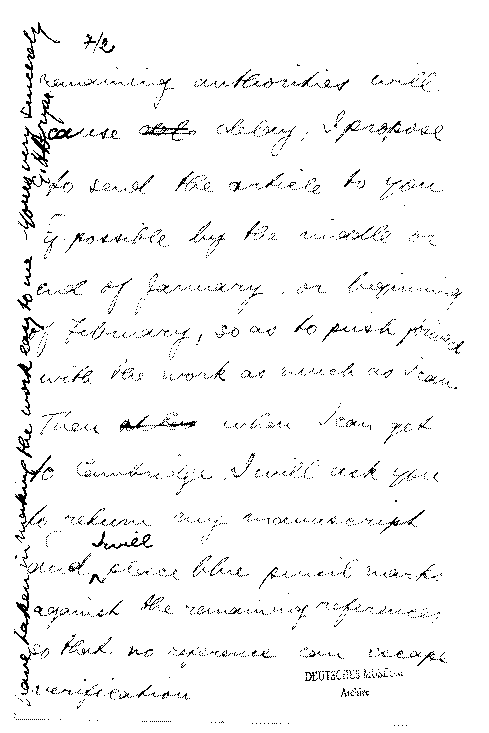 7/2
remaining authorities will
cause delay, I propose
to send the article to you
if possible by the middle or
end of January, or beginning
of February, so as to push forward
with the work as much as I can.
Then when I can get
to Cambridge, I will ask you
to return my manuscript
and I will place blue pencil marks
against the remaining references
so that no reference can escape
verification
DEUTSCHES MUSEUM
Archiv
have taken in making the work easy to me - Yours very sincerely
G. H. Bryan